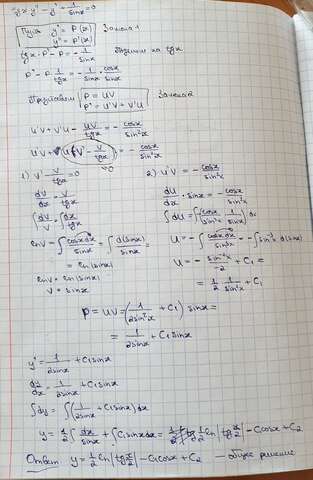 tgx·y'' − y' + 1/sinx = 0
Пусть y' = P(x) Замена 1
y'' = P'(x)
tgx·P' − P = −1/sinx Делим на tgx
P' − P·1/tgx = −1/sinx · cosx/sinx
P = UV Замена 2
P' = U'V + V'U
U'V + V'U − UV/tgx = −cosx/sin²x
U'V + U(V' − V/tgx) = −cosx/sin²x
=0
1) V' − V/tgx = 0
dV/dx = V/tgx
∫dV/V = ∫dx/tgx
lnV = ∫cosxdx/sinx = ∫d(sinx)/sinx =
= ln|sinx|
lnV = ln|sinx|
V = sinx
2) U'V = −cosx/sin²x
dU/dx · sinx = −cosx/sin²x
∫dU = ∫(−cosx/sin²x · 1/sinx) dx
U = −∫cosxdx/sin³x = −∫sin⁻³x d(sinx)
U = −sin⁻²x/−2 + C₁ =
= 1/2 · 1/sin²x + C₁
P = UV = (1/2sin²x + C₁) sinx =
= 1/2sinx + C₁sinx
y' = 1/2sinx + C₁sinx
dy/dx = 1/2sinx + C₁sinx
∫dy = ∫(1/2sinx + C₁sinx)dx
y = 1/2 ∫dx/sinx + ∫C₁sinxdx = 1/2 ln|tg x/2| − C₁cosx + C₂
Ответ: y = 1/2 ln|tg x/2| − C₁cosx + C₂ — общее решение